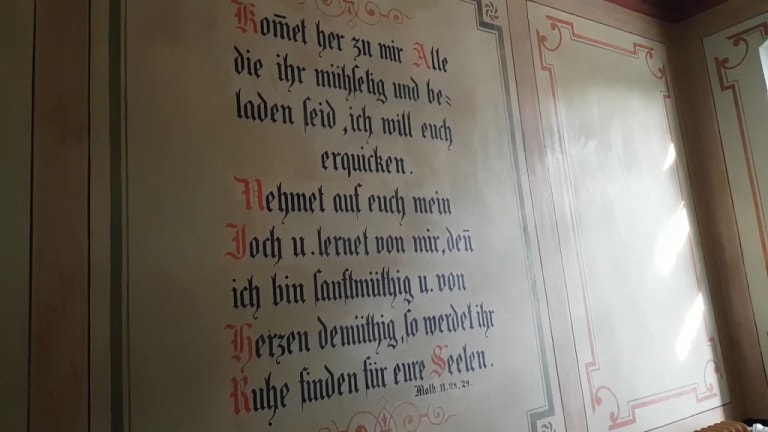 Kom̅et her zu mir Alle
die ihr mühselig und be=
laden seid, ich will euch
erquicken.
Nehmet auf euch mein
Joch u. lernet von mir, den̅
ich bin sanftmüthig u. von
Herzen demüthig, so werdet ihr
Ruhe finden für eure Seelen.
Math. 11. 28, 29.